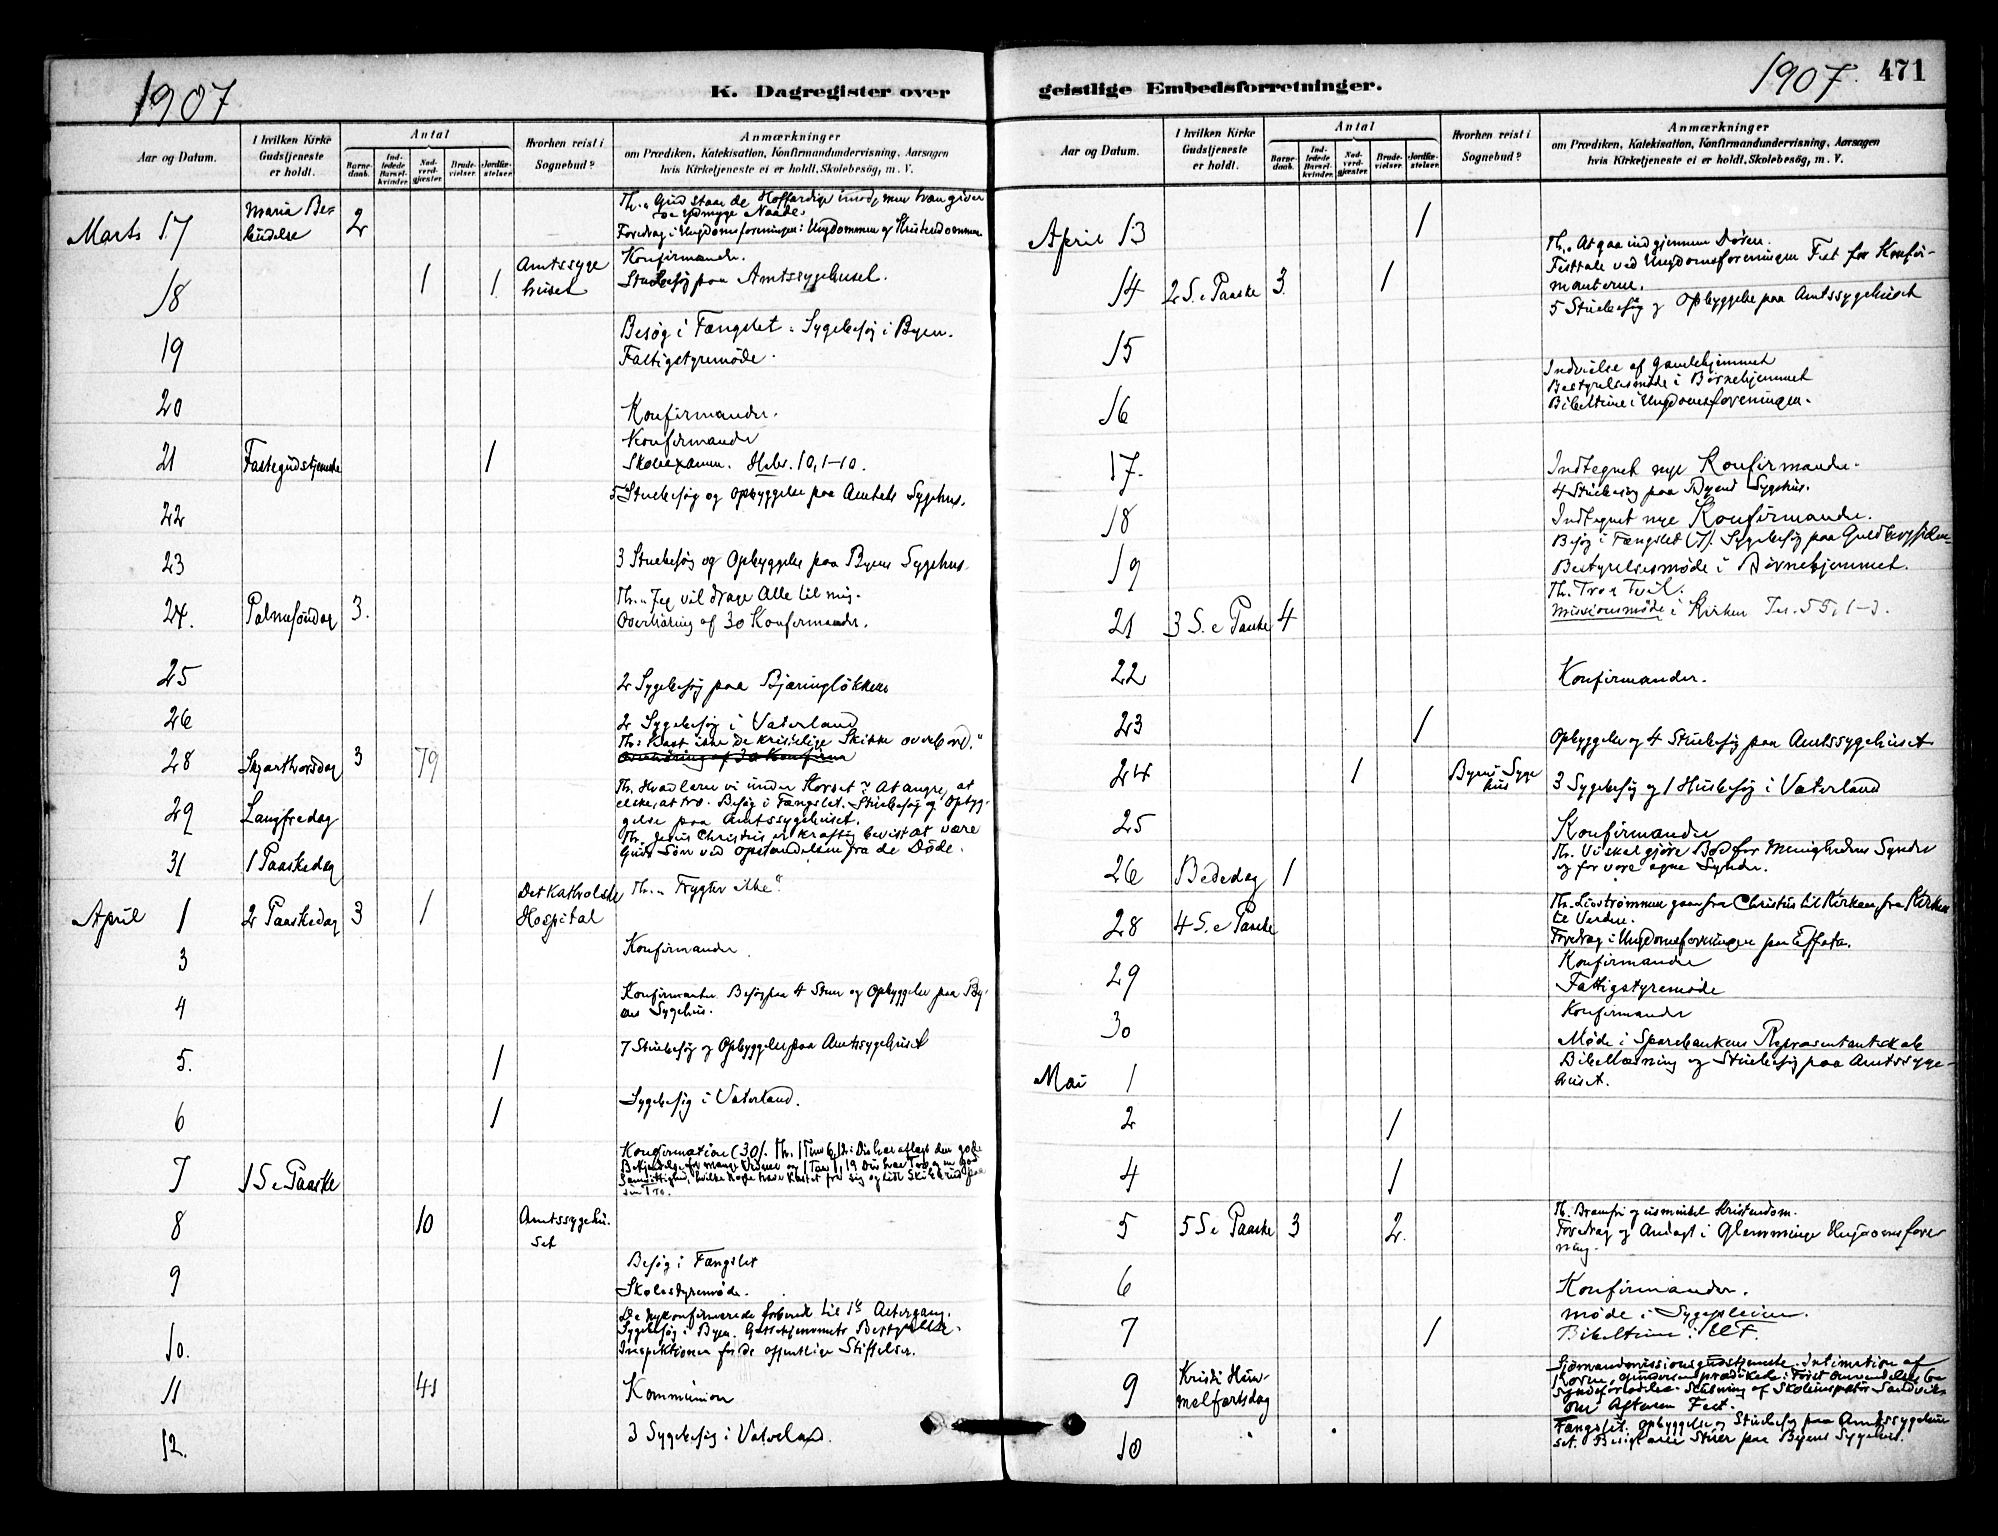 1907
K. Dagregister over
Aar og Datum.
I hvilken Kirke
Gudstjeneste
er holdt.
Antal
Barne-
daab.
Ind-
ledede
Barsel-
kvinder.
Nad-
verd-
gjæster.
Brude-
vielser.
Jordfæ-
stelser.
Hvorhen reist i
Sognebud?
Anmærkninger
om Prædiken, Katekisation, Konfirmandundervisning, Aarsagen
hvis Kirketjeneste ei er holdt, Skolebesøg, m. V.
Th. „Gud staar de Hoffærdige imod, men han giver
de ydmyge Naade.
Marts 17 Maria Be-
budelse 2 Foredrag i Ungdomsforeningen: Ungdommen og Kristendommen
18 1 1 Amtssyge
huset Konfirmander.
Stuebesøg paa Amtssygehuset.
19 Besøg i Fængslet. Sygebesøg i Byen.
Fattigstyremøde.
20 Konfirmander.
21 Fastegudstjeneste 1 Konfirmander
Skoleexamen. Hebr. 10, 1-10.
22 5 Stuebesøg og Opbyggelse paa Amtets Sygehus.
23 3 Stuebesøg og Opbyggelse paa Byens Sygehus.
24. Palmesøndag 3. Th. „Jeg vil drage Alle til mig.
Overhøring af 30 Konfirmander.
25 2 Sygebesøg paa Bjæringløkken
26 2 Sygebesøg i Vaterland
28 Skjærthorsdag 3 79 Th: Kast ikke de kristelige Skikke overbord."
Overhøring af 30 Konfirm
29 Langfredag Th. Hvad lærer vi under Korset? At angre, at
elske, at tro. Besøg i Fængslet. Stuebesøg og Opbyg-
gelse paa Amtssygehuset.
31 1 Paaskedag Th. Jesus Christus er kraftig bevist at være
Guds Søn ved Opstandelsen fra de Døde.
April 1 2 Paaskedag 3 1 Det katholske
Hospital Th. „Frygter ikke".
3 Konfirmander
4 Konfirmander. Besøg paa 4 Stuer og Opbyggelse paa By-
ens Sygehus.
5. 1 7 Stuebesøg og Opbyggelse paa Amtssygehuset
6 1 Sygebesøg i Vaterland.
7 1 S e Paaske Konfirmation (30). Th. 1 Tim 6,12: Du har aflagt den gode
Bekjendelse for mange Vidner og 1 Tim 1,19 Du har Tro og en god
Samvittighed, hvilke Nogle have kastet fra sig og lidt Skibbrud paa
sin Tro.
8 10 Amtssygehu-
set
9 Besøg i Fængslet
Skolestyremøde.
10. De nykonfirmerede forberedt til 1te Altergang.
Sygebesøg i Byen. Guttehjemmets Bestyrelse.
Inspektionen for de offentlige Stiftelser.
11 41 Kommunion
12. 3 Sygebesøg i Vaterland.
geistlige Embedsforretninger.
1907. 471
Aar og Datum.
I hvilken Kirke
Gudstjeneste
er holdt.
Antal
Barne-
daab.
Ind-
ledede
Barsel-
kvinder.
Nad-
verd-
gjæster.
Brude-
vielser.
Jordfæ-
stelser.
Hvorhen reist i
Sognebud?
Anmærkninger
om Prædiken, Katekisation, Konfirmandundervisning, Aarsagen
hvis Kirketjeneste ei er holdt, Skolebesøg, m. V.
April 13 1
14 2 S. e Paaske 3. 1 Th. At gaa ind gjennem Døren.
Festtale ved Ungdomsforeningen Fest for Konfir-
manterne.
15 5 Stuebesøg og Opbyggelse paa Amtssygehuset
16 Indvielse af Gamlehjemmet
Bestyrelsesmøde i Børnehjemmet
Bibeltime i Ungdomsforeningen.
17. Indtegnet nye Konfirmander.
4 Stuebesøg paa Byens Sygehus.
18 Indtegnet nye Konfirmander.
19 Besøg i Fængslet (7). Sygebesøg paa
Bestyrelsesmøde i Børnehjemmet.
21 3 S. e Paaske 4 Th. Tro Tvil.
Missionsmøde i Kirken Jes. 55, 1-3.
22 Konfirmander.
23 1 Opbyggelse og 4 Stuebesøg paa Amtssygehuset
24 1 Byens Syge
hus 3 Sygebesøg og 1 Husbesøg i Vaterland
25 Konfirmander
26 Bededag 1 Th. Vi skal gjøre Bod for Menighedens Synder
og for vore egne Synder.
28 4 S. e Paaske Th. Livsstrømmen gaar fra Christus til Kirken, fra Kirken
til Verden.
Foredrag i Ungdomsforeningen paa Effata.
29 Konfirmander
Fattigstyremøde
30 Konfirmander
Mai 1 Møde i Sparebankens Repræsentantskab
Bibellæsning og Stuebesøg paa Amtssyge-
huset.
2 1
4 1
5 5 S e Paaske 3 2. Th. Brændt og Kristendom.
Foredrag og Andagt i Glemminge Ungdomsfore-
ning.
6 Konfirmander.
7 1 Møde i Sygepleien.
Bibeltime i U.F.
9 Kristi Him-
melfartsdag Sjømandsmissionsgudstjeneste. Intimation af
om Aftenen Fest.
10 Fængslet. Opbyggelse og Stuebesøg paa Amtssygehu
set. Besøg Stuer paa Byens Sygehus.